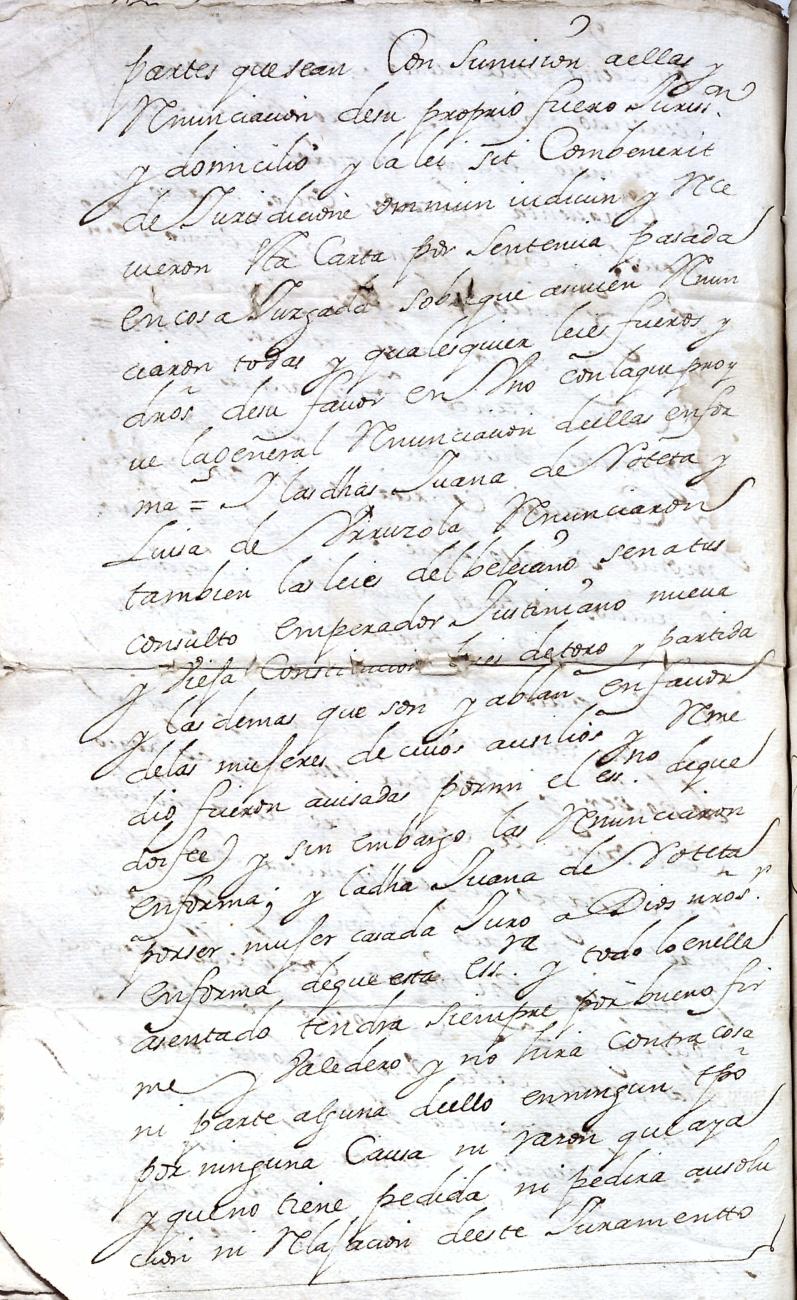 partes que sean Con sumision a ellas y
Renunciacion de su proprio fuero Juris.on
y domicilio y la lei sit Combenerit
de Jurisdicione omnium iudicun y Rce
uieron esta Carta por sentencia pasada
en cosa Juzgada sobre que asimien Renun
ciaron todas y qualesquier leies fueros y
dros de su fauor en Vno con la que proy
ue la general Renunciacion de ellas en for
ma = Y las dhas Juana de Noteta y
Luisa de Vrruzola Renunciaron
tambien las leies del beleiano senatus
consulto emperador Justiniano nueua
y Vieja Constitucion leies de toro y partida
y las demas que son y ablan en fauor
de las mujeres de cuios ausilios y Reme
dio fueron auisadas por mi el ess.no de que
doi fee) y sin embargo las Renunciaron
en forma; y la dha Juana de Noteta
por ser mujer casada Juro a Dios nro s.r
en forma de que esta ess.ra y todo lo en ella
asentado tendra siempre por bueno fir
me y Valedero y no hira contra cosa
ni parte alguna de ello en ningun tpo
por ninguna Causa ni razon que aya
y que no tiene pedida ni pedira ausolu
cion ni Relajacion de este Juramentto